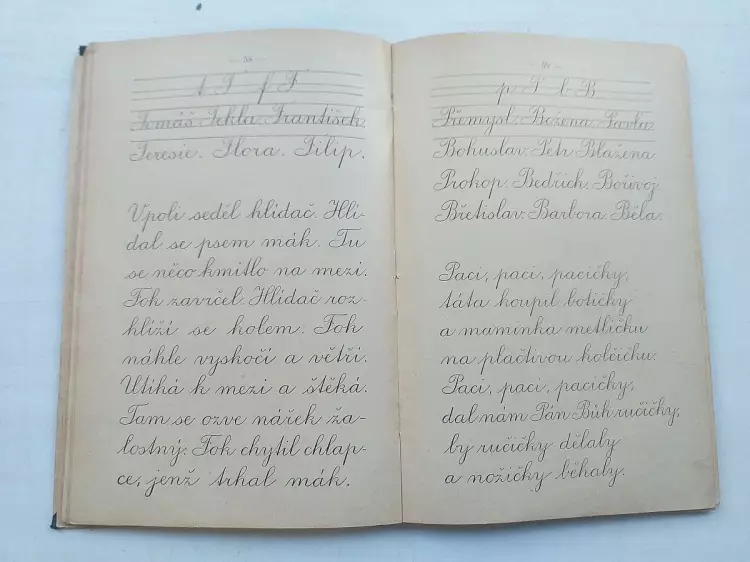 — 58 —
t T f F
Tomáš. Tekla. František.
Teresie. Flora. Filip.
V poli seděl hlídač. Hlí-
dal se psem mák. Tu
se něco kmitlo na mezi.
Fok zavrčel. Hlídač roz-
hlíží se kolem. Fok
náhle vyskočí a větří.
Utíká k mezi a štěká.
Tam se ozve nářek ža-
lostný. Fok chytil chlap-
ce, jenž trhal mák.
— 59 —
p P b B
Přemysl. Božena. Pavla.
Bohuslav. Petr. Blažena.
Prokop. Bedřich. Bořivoj.
Břetislav. Barbora. Běla.
Paci, paci, pacičky,
táta koupil botičky
a maminka metličku
na plačtivou holčičku.
Paci, paci, pacičky,
dal nám Pán Bůh ručičky,
by ručičky dělaly
a nožičky běhaly.